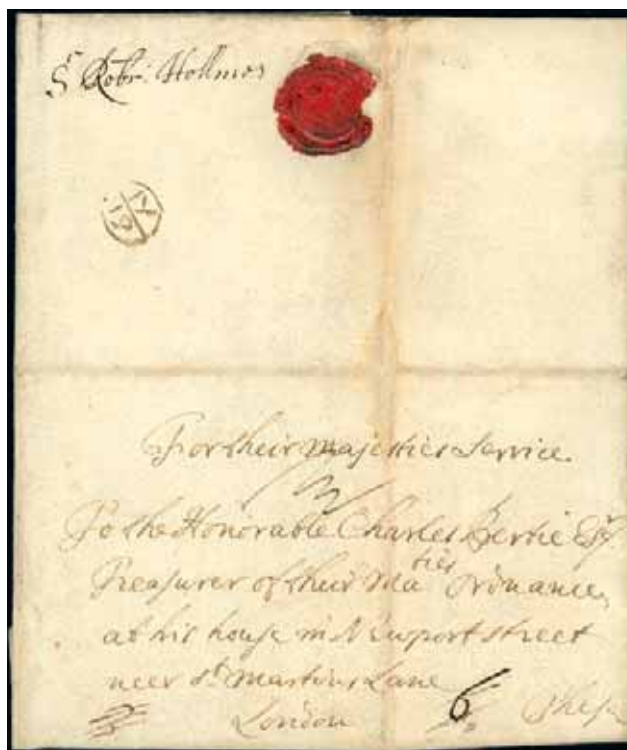 Sr Robt: Hollmes
12
For their Majesties Service.
To the Honorable Charles Bertie Esqr.
Treasurer of their Maties Ordnance
at his house in Newport street
neer St. Martins Lane
London 6